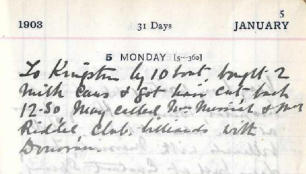 5
1903 31 Days JANUARY
5 MONDAY [5—360]
To Kingston by 10 boat, bought 2
milk cans & got hair cut back
12-30 May called, Mr & Mrs
Riddel, Club, billiards with
Donovan.